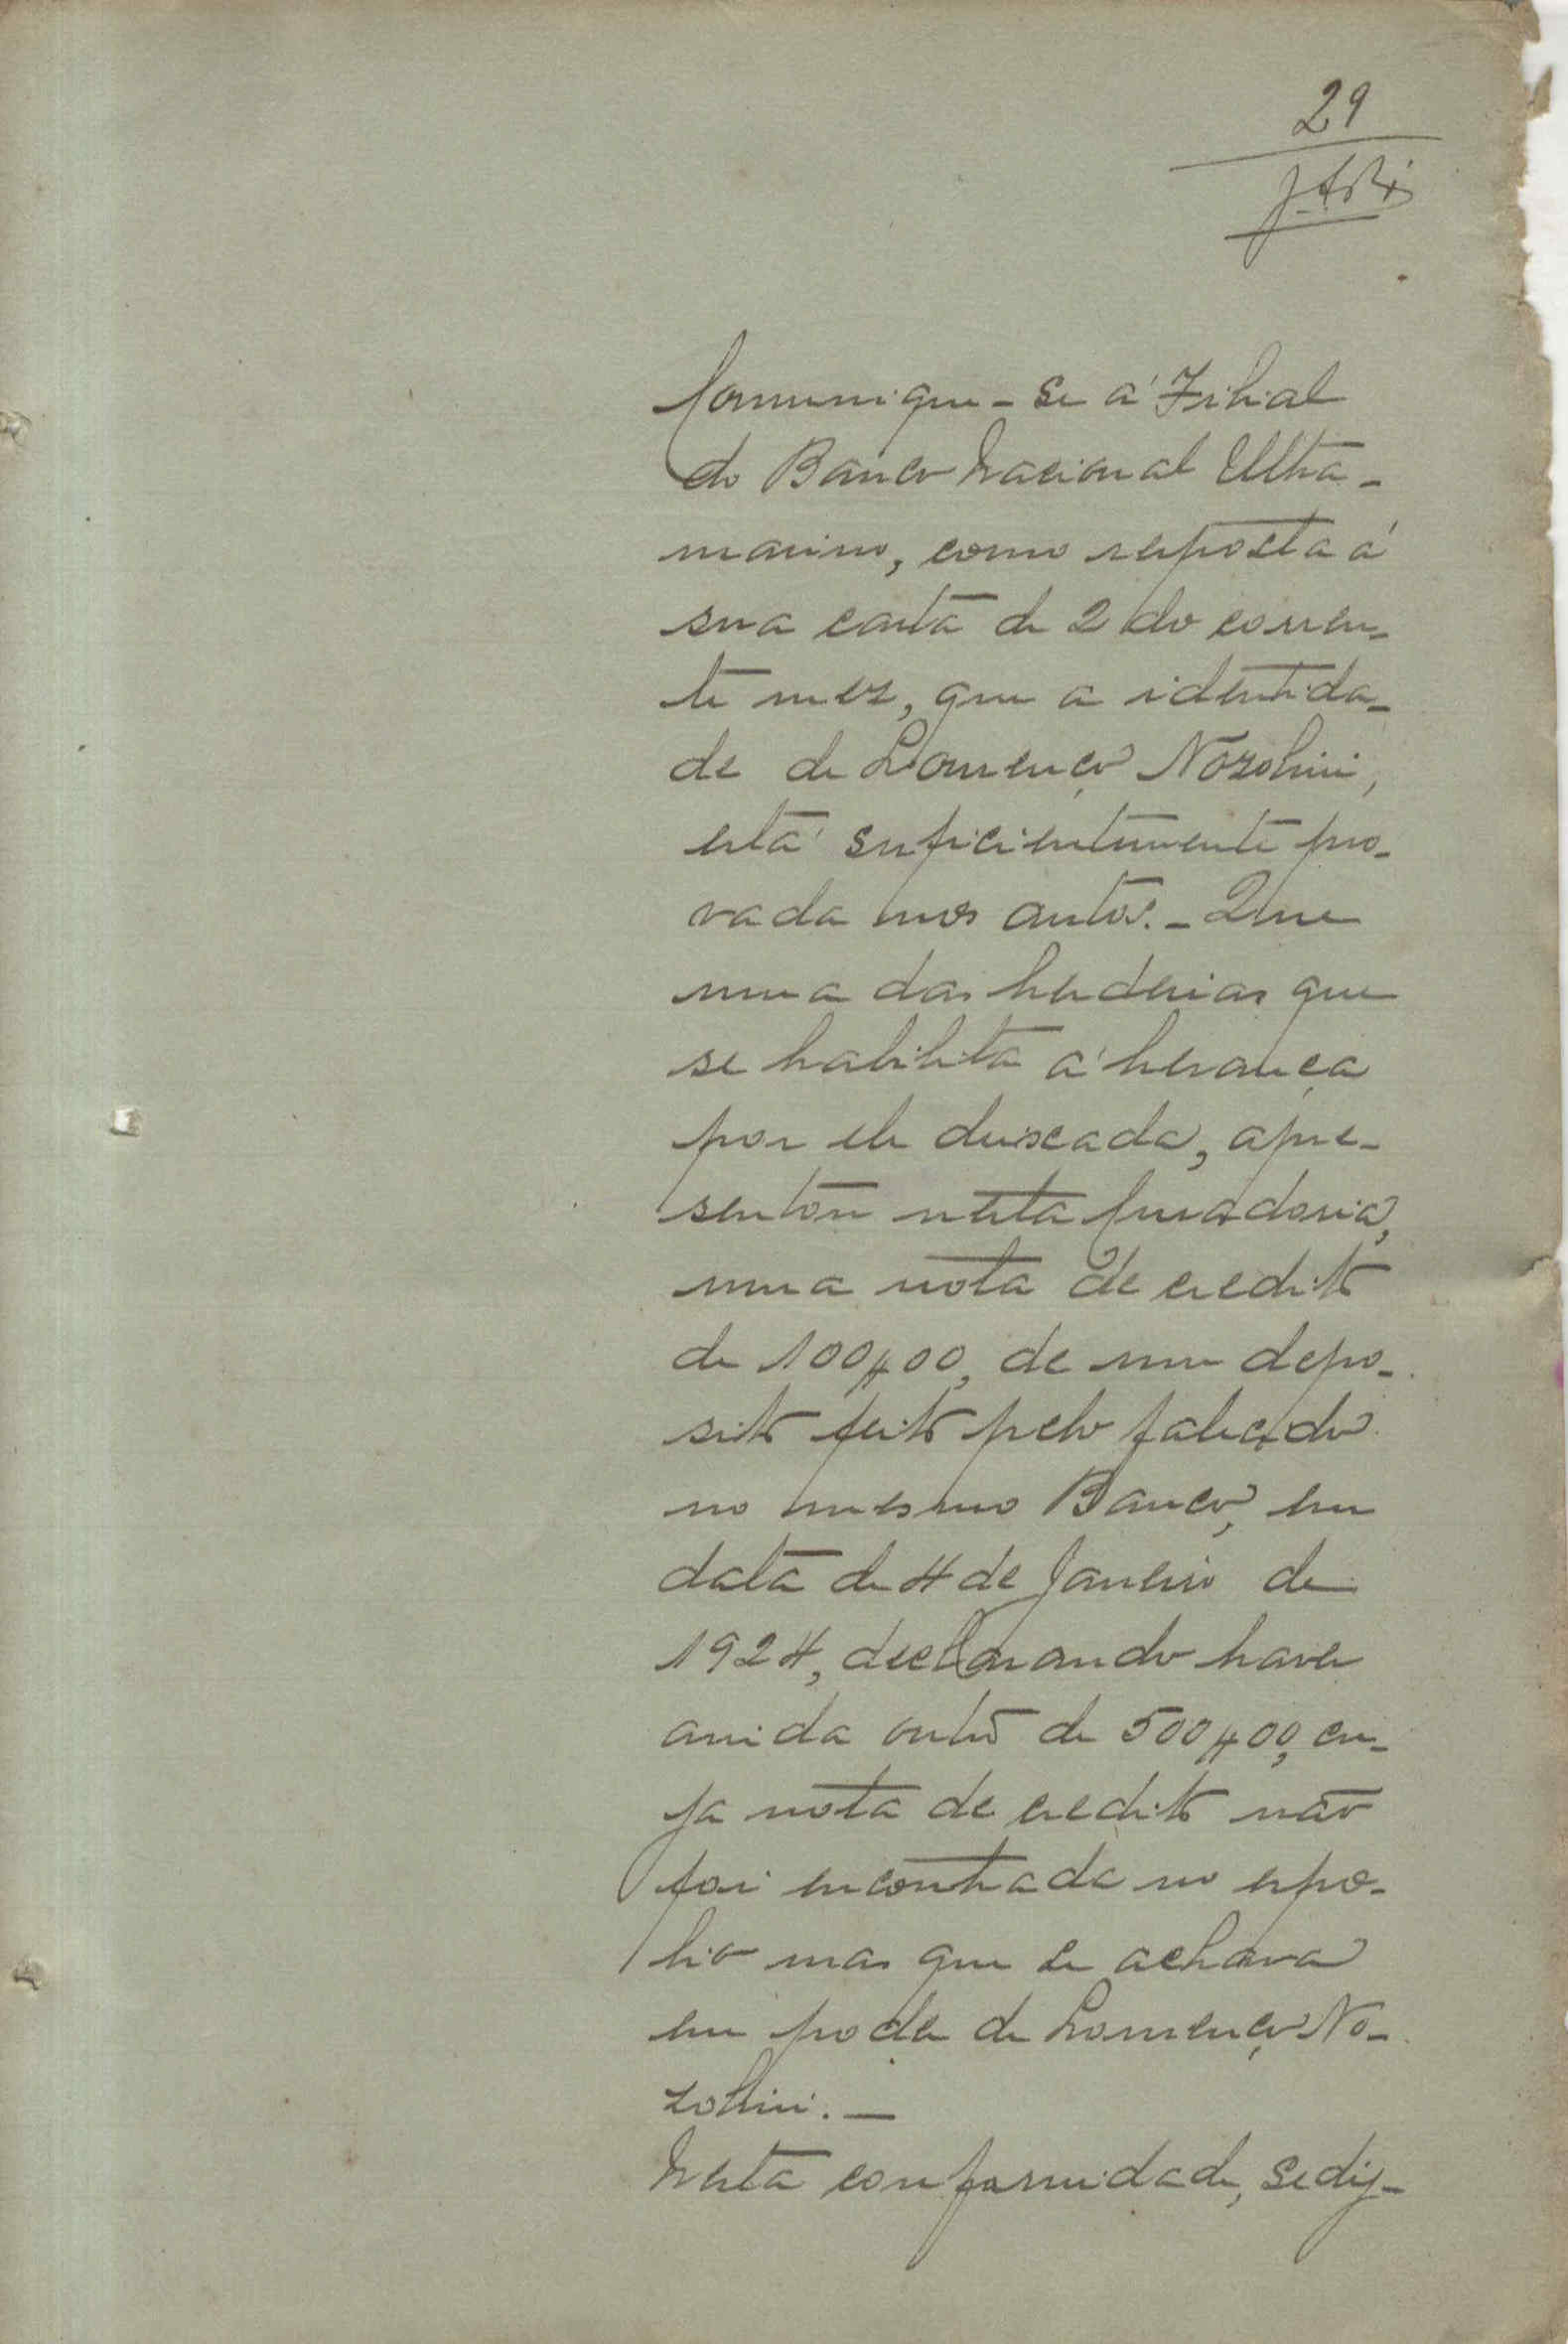 29
Comunique-se á Filial
do Banco Nacional Ultra-
marino, como resposta á
sua carta de 2 do corren-
te mez, que a identida-
de de Lourenço Nozolini,
está suficientemente pro-
vada nos autos. - Que
uma das herdeiras que
se habilita á herança
por ele deixada, apre-
sentou nesta Curadoria,
uma nota de credito
de 100$00, de um depo-
sito feito pelo falecido
no mesmo Banco, em
data de 4 de Janeiro de
1924, declarando haver
ainda outro de 500$00, cu-
ja nota de credito não
foi encontrada no espo-
lio mas que se achava
em poder de Lourenço No-
zolini. -
Nesta conformidade, se dig-